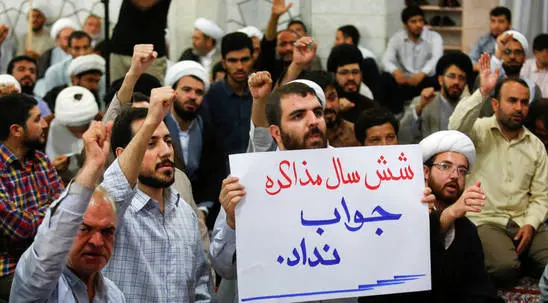 شش سال مذاکره
جواب
نداد.